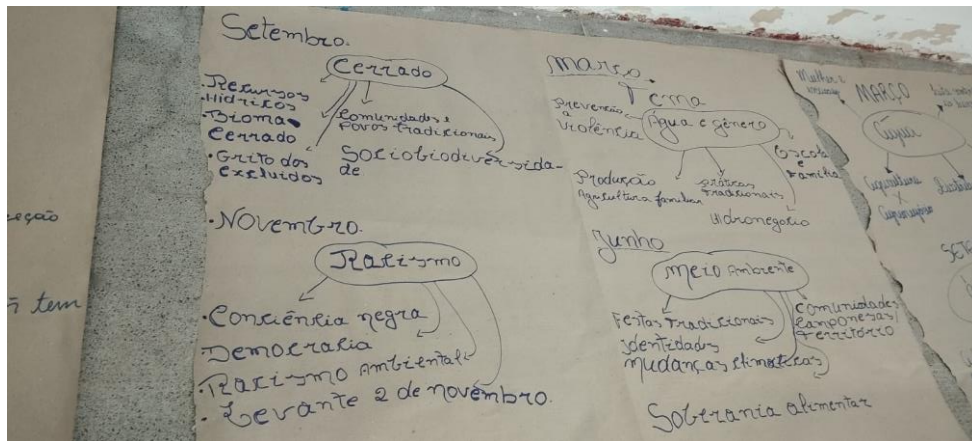 Setembro.
Cerrado
• Recursos
Hídricos
• Bioma
Cerrado
• Grito dos
Excluídos
Comunidades e
Povos Tradicionais
Sociobiodiversida-
de
• Novembro.
Racismo
• Consciência negra
Democracia
• Racismo Ambiental
• Levante 2 de novembro.
Março.
Tema
Água e gênero
Prevenção
a
Violência
Escola
e
Família
Produção
Agricultura familiar
práticas
Tradicionais
Hidronegocio
Junho
Meio Ambiente
Festas Tradicionais
identidades
mudanças climáticas
Comunidades
Camponesas/
Território
Soberania alimentar
MARÇO
tem